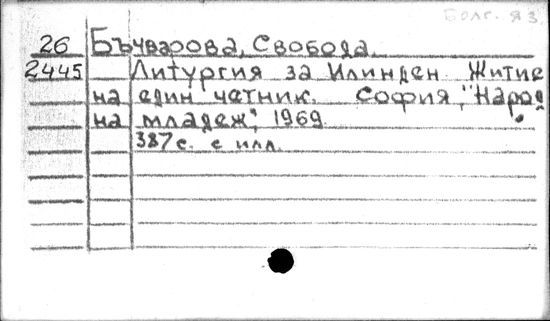 Болг. яз
26 Бъчварова, Свобода.
2445 Литургия за Илинден. Житие
на един четник. София, "Народ
на младеж", 1969.
387 с. с илл.